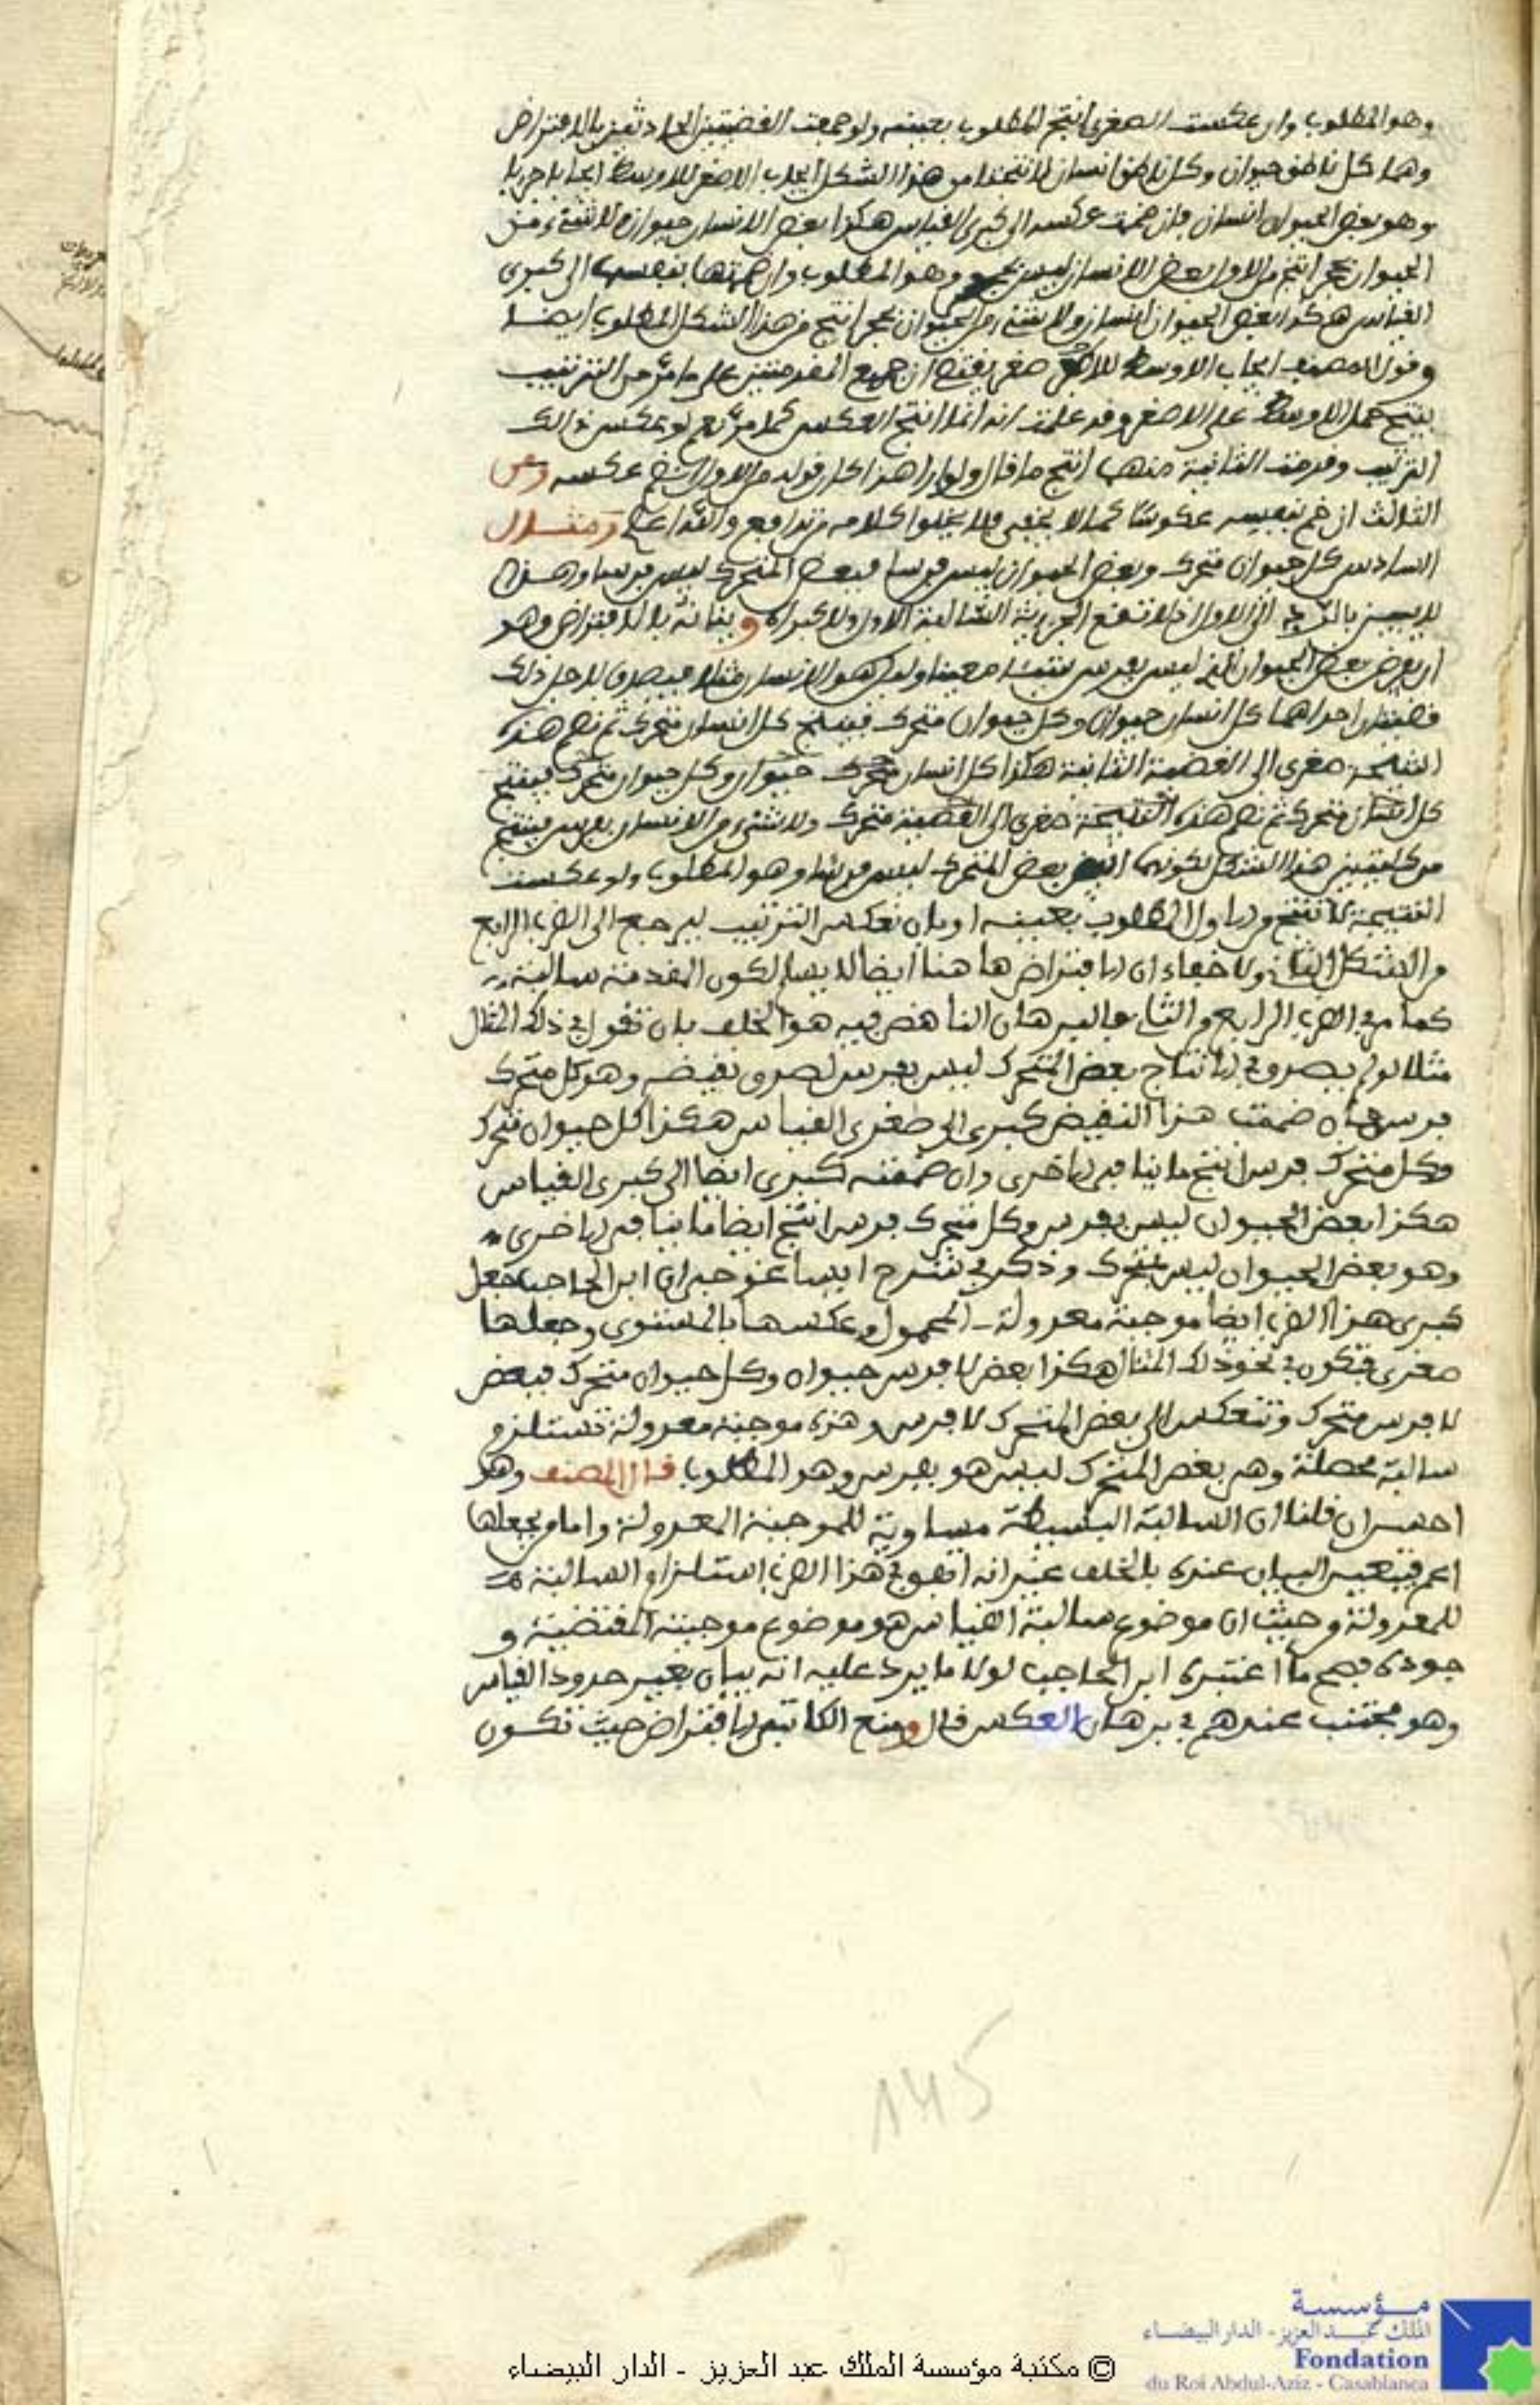 وهو المطلوب وان عكست الصغرى انتج المطلوب بعينه ولو جمعت القضيتين الحادثتين بالافتراض
وهما كل ناطق حيوان وكل ناطق انسان لانتجتا من هذا الشكل ايجاب الاصغر للاوسط ايجابا جزيا
وهو بعض الحيوان انسان فان ضمت عكسه الى كبرى القياس هكذا بعض الانسان حيوان ولا شيء من
الحيوان بحجر انتج من الاول بعض الانسان ليس بحجر وهو المطلوب وان ضمتها بنفسها الى كبرى
القياس هكذا بعض الحيوان انسان ولا شيء من الحيوان بحجر انتج من هذا الشكل المطلوب ايضا
وقول المصنف ايجاب الاوسط للاصغر صغرى يقتضي ان جميع المقدمتين على ما مر من الترتيب
ينتج حمل الاوسط على الاصغر وقد علمت انه انما انتج العكس كما مر نعم لو عكس ذالك
الترتيب وقدمت الثانية منهما انتج ما قال ولو اراد هذا كان قوله من الاول ان ضم عكسه ومن
الثالث ان ضم بنفسه عكوسا كما لا يخفى فلا يخلوا كلامه من تدافع والله اعلم ومثال
السادس كل حيوان متحرك وبعض الحيوان ليس فرسا فبعض المتحرك ليس فرسا وهذا
لا يبين بالرد الى الاول اذ لا تقع الجزئية السالبة الاول ولا كبراه وبيانه بالافتراض وهو
ان يفرض بعض الحيوان الذي ليس بفرس شيئا معينا وليكن هو الانسان مثلا فيصدق لاجل ذلك
قضيتان احداهما كل انسان حيوان وكل حيوان متحرك فينتج كل انسان متحرك ثم نضم هذه
النتيجة صغرى الى القضية الثانية هكذا كل انسان متحرك حيوان وكل حيوان متحرك فينتج
كل انسان متحرك ثم نضم هذه النتيجة صغرى الى القضية متحرك ولا شيء من الانسان بفرس فينتج
من كليتين هذا الشكل لكونهما بعض المتحرك ليس فرسا وهو المطلوب ولو عكست
النتيجة لانتج من الاول المطلوب بعينه او بان تعكس الترتيب ليرجع الى الضرب الرابع
من الشكل الثاني ولا خفاء ان الافتراض ها هنا ايضا لا يسلم لكون المقدمة سالبة
كما مر في الضرب الرابع من الثاني فالبرهان الناهض فيه هو الخلف بان تقول في ذلك المثال
مثلا لو لم يصدق في الانتاج بعض المتحرك ليس بفرس لصدق نقيضه وهو كل متحرك
فرس فان ضممت هذا النقيض كبرى الى صغرى القياس هكذا كل حيوان متحرك
وكل متحرك فرس انتج ما ينافي الاخرى وان ضممته كبرى ايضا الى كبرى القياس
هكذا بعض الحيوان ليس بفرس وكل متحرك فرس انتج ايضا ما ينافي الاخرى
وهو بعض الحيوان ليس بمتحرك وذكر في شرح ايساغوجي ان ابن الحاجب جعل
كبرى هذا الضرب ايضا موجبة معدولة المحمول وعكسها بالمستوى وجعلها
صغرى فتكون في نحو ذلك المثال هكذا بعض لا فرس حيوان وكل حيوان متحرك فبعض
لا فرس متحرك وتنعكس الى بعض المتحرك لا فرس وهذه موجبة معدولة تستلزم
سالبة محصلة وهي بعض المتحرك ليس هو بفرس وهو المطلوب قال المصنف وهو
احسن ان قلنا ان السالبة البسيطة مساوية للموجبة المعدولة واما من يجعلها
اعم فيتعين البيان عنده بالخلف غير انه اتفق في هذا الضرب استلزام السالبة
للمعدولة من حيث ان موضوع سالبة القياس هو موضوع موجبته المقتضية و
جوده فصح ما اعتبره ابن الحاجب لولا ما يرد عليه انه بيان بغير حدود القياس
وهو مجتنب عندهم في برهان العكس قال ومنع الكاتبي الافتراض حيث تكون
145
مؤسسة
الملك عبد العزيز - الدار البيضاء
Fondation
du Roi Abdul-Aziz - Casablanca
© مكتبة مؤسسة الملك عبد العزيز - الدار البيضاء